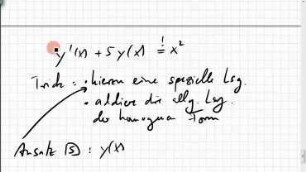 y'(x) + 5 y(x) != x²
Trick: • hierzu eine spezielle Lsg.
• addiere die allg. Lsg.
der homogenen Form
Ansatz [S]: y(x)